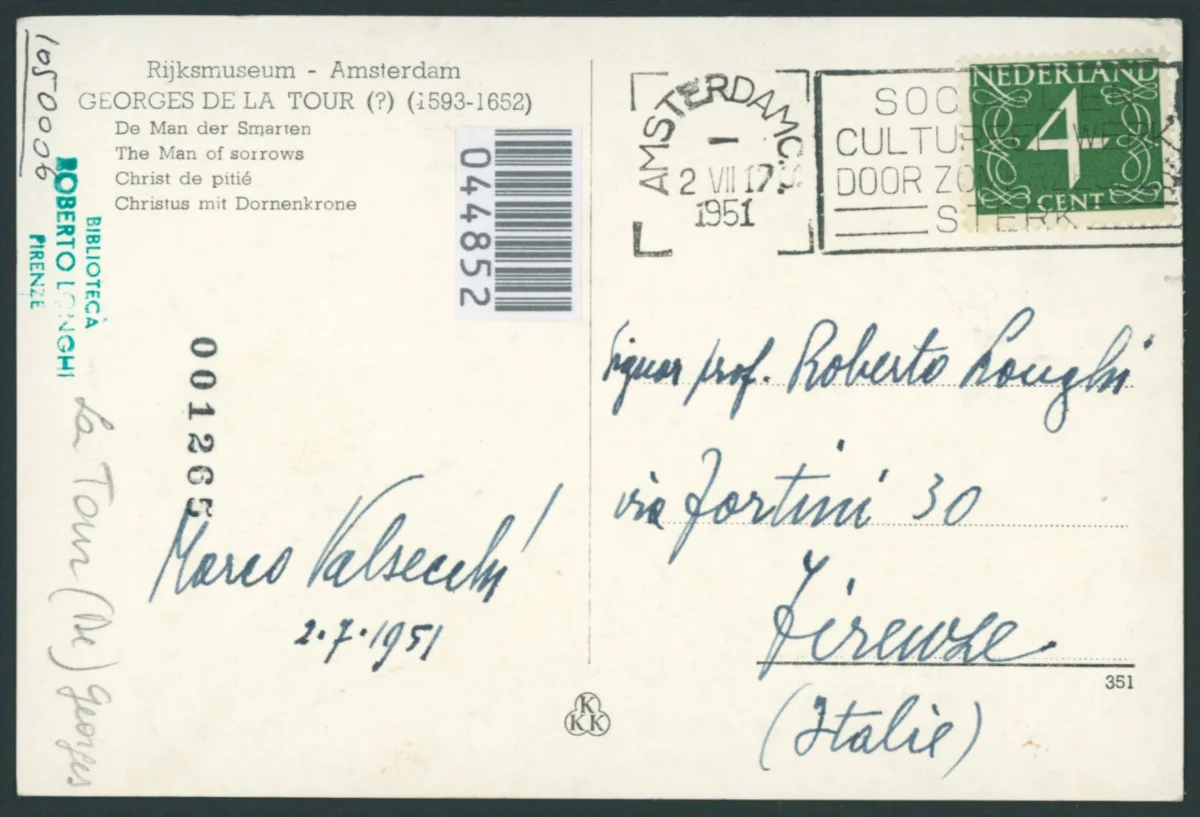 1050006
Rijksmuseum - Amsterdam
GEORGES DE LA TOUR (?) (1593-1652)
De Man der Smarten
The Man of sorrows
Christ de pitié
Christus mit Dornenkrone
BIBLIOTECA
ROBERTO LONGHI
FIRENZE
044852
001265
La Tour (De) Georges
Marco Valsecchi
2.7.1951
KKK
AMSTERDAM
2 VII 17
1951
SOC
CULTU WERK
DOOR ZO
STERK
NEDERLAND
4
CENT
Signor prof. Roberto Longhi
via Fortini 30
Firenze
(Italie)
351